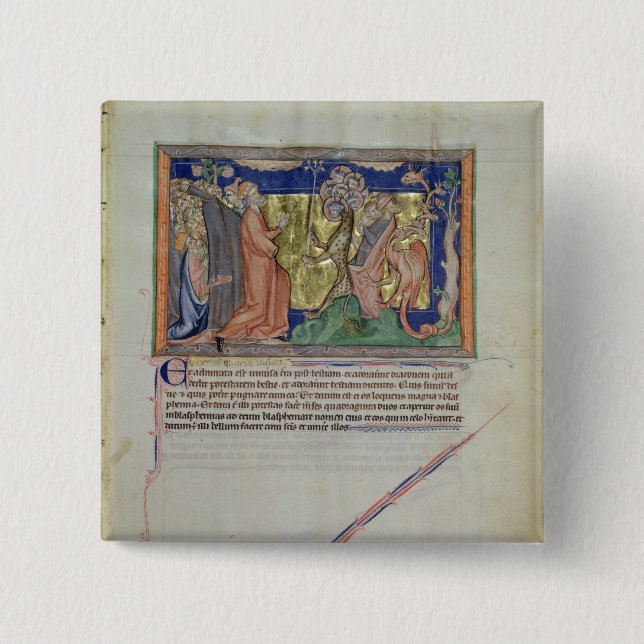 Et admirata est universa tra post bestiam. et adoraverunt draconem quia
dedit potestatem bestie. et adoraverunt bestiam dicentes. Quis simil' bes
tie & quis poterit pugnare cum ea? Et datum est ei os loquens magna & blas
phemia. Et data e illi potestas face mses quadraginta duos et aperuit os suu
in blasphemias ad deum blasphemare nomen eius et eos qui in celo hitant. et
datum e illi bellum facere cum scis et vincere illos.